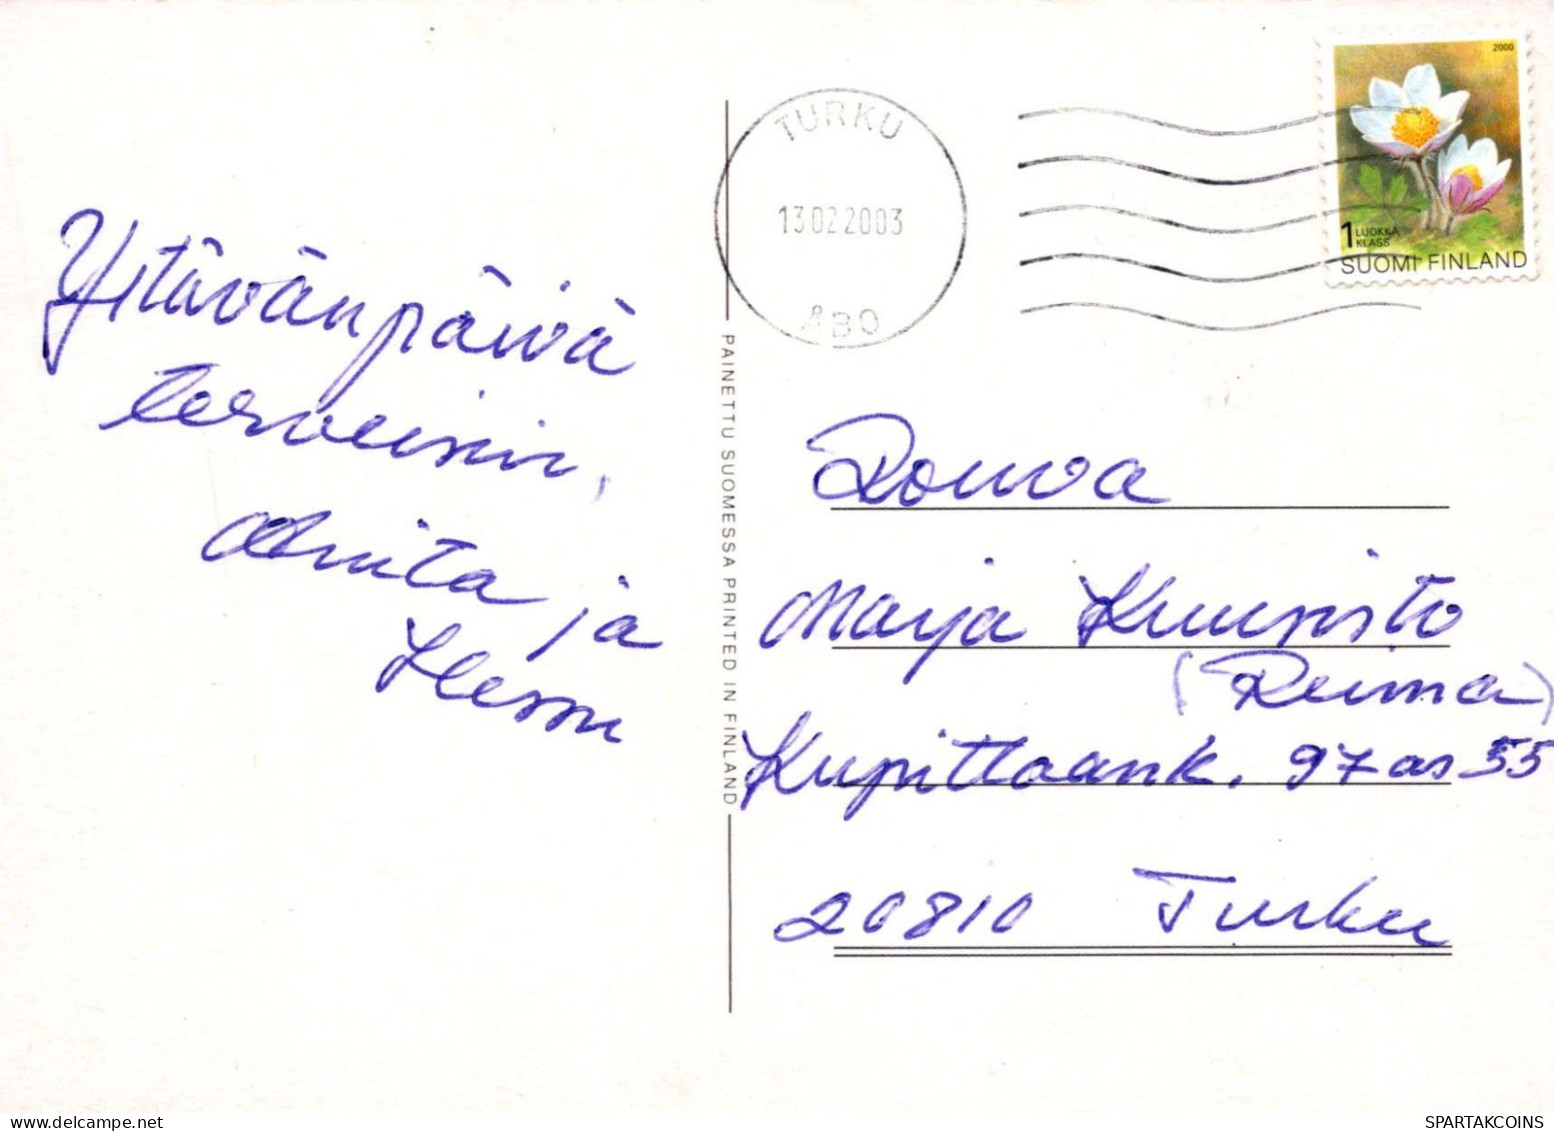 Ystävänpäivä
terveisin,
Anita ja
TURKU
13022003
ÅBO
2000
1 LUOKKA
KLASS
SUOMI FINLAND
PAINETTU SUOMESSA PRINTED IN FINLAND
Rouva
Marja Kuusisto
(Reima)
Kupittaank. 97 as 55
20810 Turku
SPARTAKCOINS